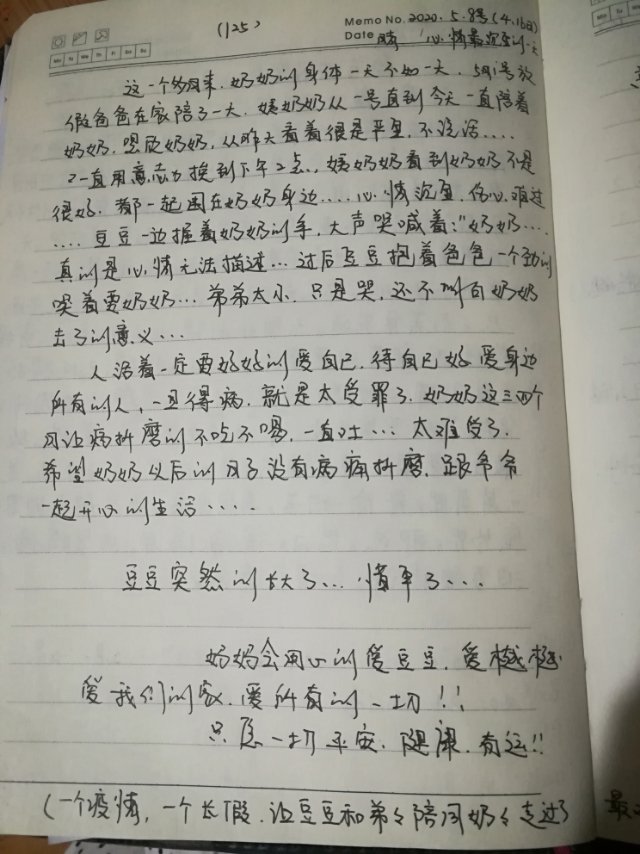 (125)
Memo No. 2020. 5. 8号 (4.16日)
Date 晴 心情最沉重的一天
Mo Tu We Th Fr Sa Su
这一个多月来，奶奶的身体一天不如一天，5月1号放
假爸爸在家陪了一天，姨奶奶从一号直到今天一直陪着
奶奶，照顾奶奶，从昨天看着很是严重，不说话....
又一直用意志力挨到下午2点，姨奶奶看到奶奶不是
很好，都一起围在奶奶身边....心情沉重，伤心难过
....豆豆一边握着奶奶的手，大声哭喊着："奶奶....
真的是心情无法描述...过后豆豆抱着爸爸一个劲的
哭着要奶奶...弟弟太小，只是哭，还不明白奶奶
去了的意义...
人活着一定要好好的爱自己，待自己好，爱身边
所有的人，一旦得病，就是太受罪了，奶奶这三四个
月让病折磨的不吃不喝，一直吐...太难受了，
希望奶奶以后的日子没有病痛折磨，跟爷爷
一起开心的生活....
豆豆突然的长大了...懂事了...
妈妈会用心的爱豆豆，爱樾樾
爱我们的家，爱所有的一切！！
只愿一切平安，健康，有运！！
(一个疫情，一个长假，让豆豆和弟弟陪同奶奶走过了
最